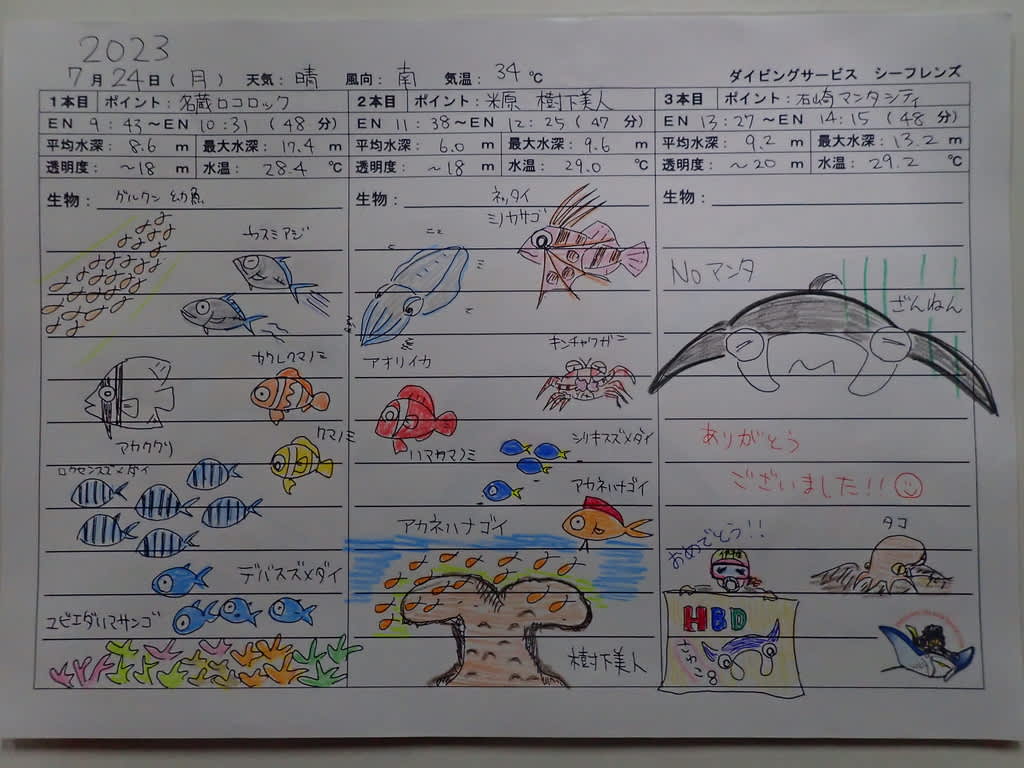 2023
7月24日(月) 天気：晴 風向：南 気温：34℃ ダイビングサービス シーフレンズ
1本目 ポイント：名蔵ロコロック
EN 9：43～EN 10：31 (48分)
平均水深：8.6 m 最大水深：17.4 m
透明度：～18 m 水温：28.4 ℃
生物：グルクン幼魚
カスミアジ
カクレクマノミ
アカククリ
クマノミ
ロクセンスズメダイ
デバスズメダイ
ユビエダハマサンゴ
2本目 ポイント：米原 樹下美人
EN 11：38～EN 12：25 (47分)
平均水深：6.0 m 最大水深：9.6 m
透明度：～18 m 水温：29.0 ℃
生物：ネッタイ
ミノカサゴ
アオリイカ
キンチャクガニ
ハマクマノミ
シリキスズメダイ
アカネハナゴイ
アカネハナゴイ
樹下美人
3本目 ポイント：石崎マンタシティ
EN 13：27～EN 14：15 (48分)
平均水深：9.2 m 最大水深：13.2 m
透明度：～20 m 水温：29.2 ℃
生物：
Noマンタ
ざんねん
ありがとう
ございました!!
おめでとう!!
タコ
HBD